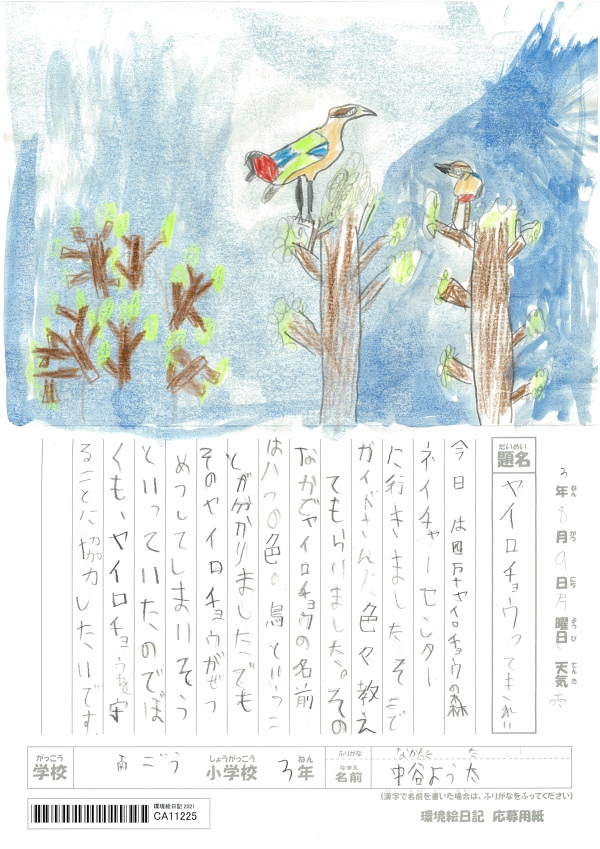 3年8月9日月曜日 天気
ねん がつ にち ようび てんき
だいめい
題名
ヤイロチョウってきれい
今日は四万十ヤイロチョウの森
ネイチャーセンター
に行きました。そこで
ガイドさんに色々教え
てもらいました。その
なかでヤイロチョウの名前
は八つの色の鳥というこ
とが分かりました。でも
そのヤイロチョウがぜつ
めつしてしまいそう
といっていたのでぼ
くも、ヤイロチョウを守
ることに協力したいです。
がっこう
学校
しょうがっこう
小学校
3年
ねん
ふりがな
なまえ
名前
中谷よう太
(漢字で名前を書いた場合は、ふりがなをふってください)
環境絵日記 2021
CA11225
環境絵日記 応募用紙